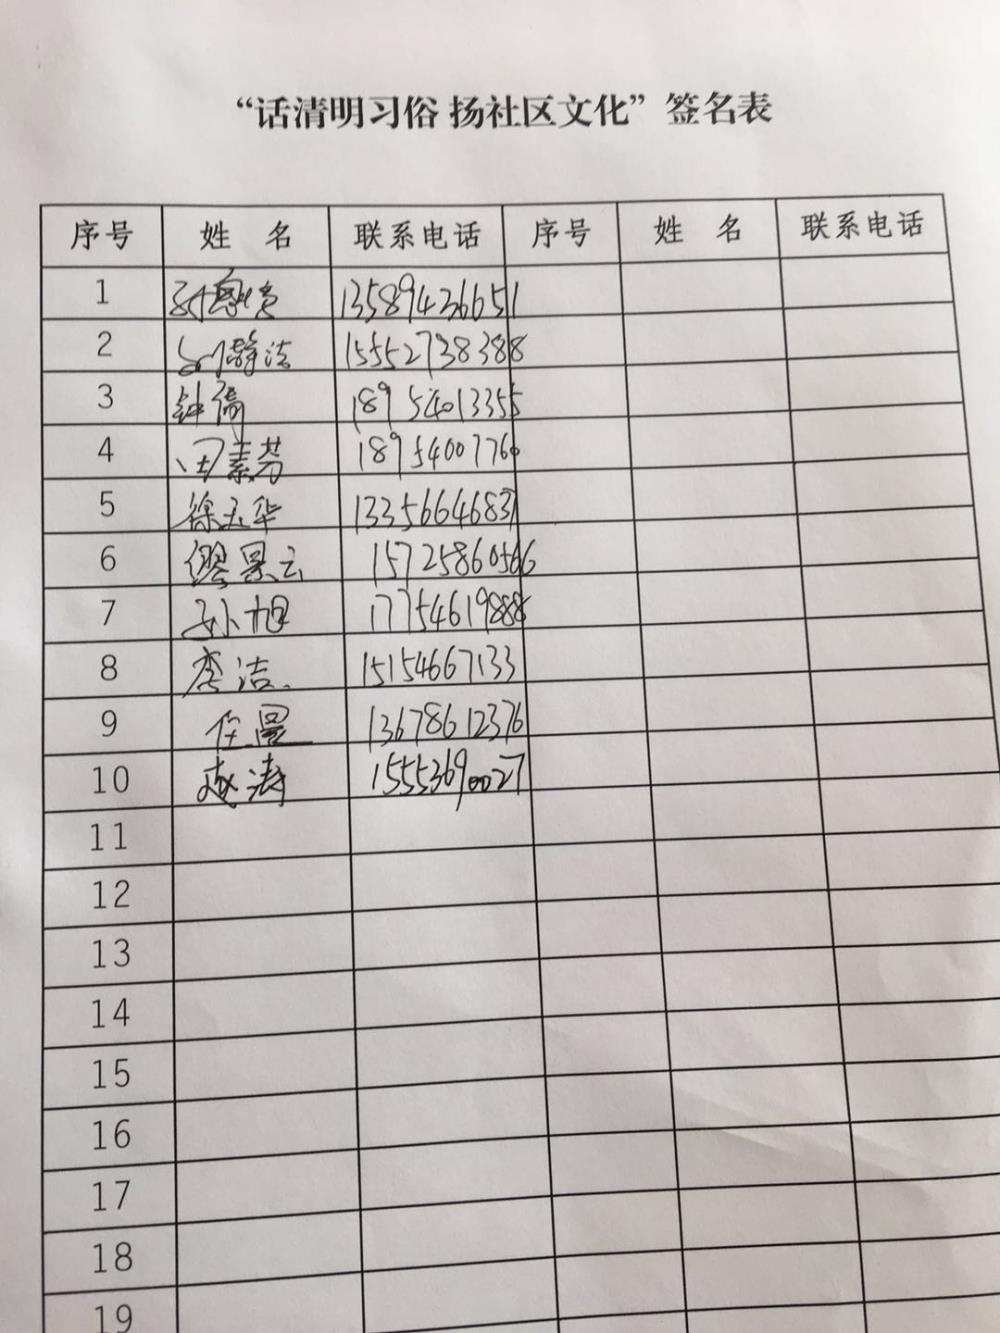 “话清明习俗 扬社区文化”签名表
序号 姓 名 联系电话 序号 姓 名 联系电话
1 13589436651
2 15552738388
3 钟倩 18954013355
4 田素芬 18954007766
5 徐玉华 13356646837
6 缪景云 15725860566
7 孙旭 17754619888
8 李洁 15154667133
9 任曼 13678612376
10 赵涛 15553690027
11
12
13
14
15
16
17
18
19